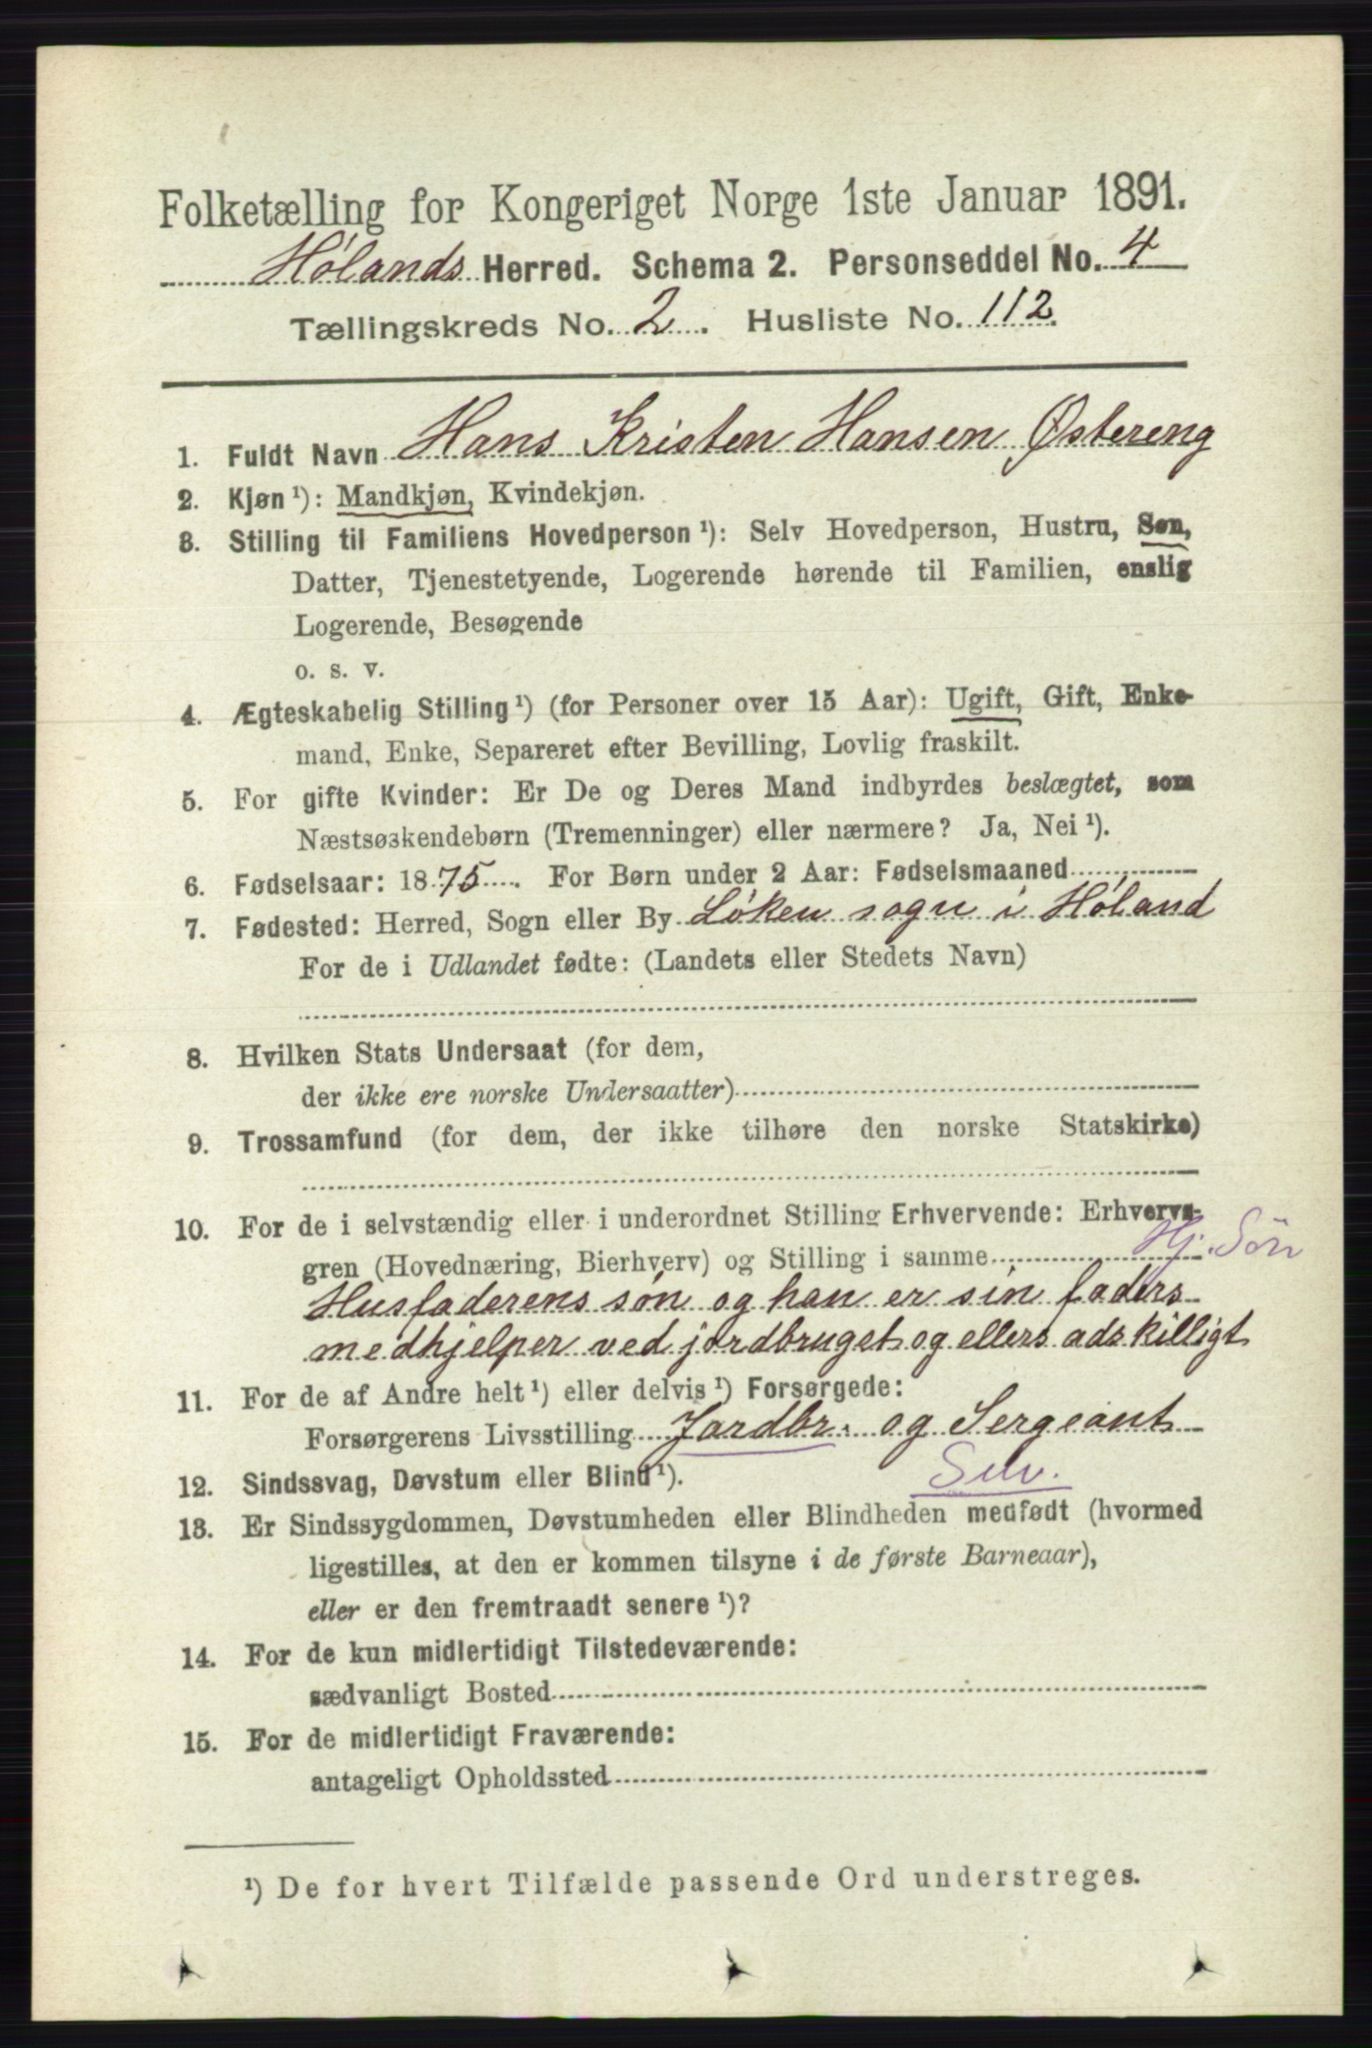 Folketælling for Kongeriget Norge 1ste Januar 1891.
Hølands Herred. Schema 2. Personseddel No. 4
Tællingskreds No. 2. Husliste No. 112.
1. Fuldt Navn Hans Kristen Hansen Østereng
2. Kjøn ¹): Mandkjøn, Kvindekjøn.
3. Stilling til Familiens Hovedperson ¹): Selv Hovedperson, Hustru, Søn,
Datter, Tjenestetyende, Logerende hørende til Familien, enslig
Logerende, Besøgende
o. s. v.
4. Ægteskabelig Stilling ¹) (for Personer over 15 Aar): Ugift, Gift, Enke-
mand, Enke, Separeret efter Bevilling, Lovlig fraskilt.
5. For gifte Kvinder: Er De og Deres Mand indbyrdes beslægtet, som
Næstsøskendebørn (Tremenninger) eller nærmere? Ja, Nei ¹).
6. Fødselsaar: 1875. For Børn under 2 Aar: Fødselsmaaned
7. Fødested: Herred, Sogn eller By Løken sogn i Høland
For de i Udlandet fødte: (Landets eller Stedets Navn)
8. Hvilken Stats Undersaat (for dem,
der ikke ere norske Undersaatter)
9. Trossamfund (for dem, der ikke tilhøre den norske Statskirke)
10. For de i selvstændig eller i underordnet Stilling Erhvervende: Erhvervs-
gren (Hovednæring, Bierhverv) og Stilling i samme Hj. Sön
Husfaderens søn og han er sin faders
medhjelper ved jordbruget og ellers adskilligt
11. For de af Andre helt ¹) eller delvis ¹) Forsørgede:
Forsørgerens Livsstilling Jordbr. og Sergeant
12. Sindssvag, Døvstum eller Blind ¹).
13. Er Sindssygdommen, Døvstumheden eller Blindheden medfødt (hvormed
ligestilles, at den er kommen tilsyne i de første Barneaar),
eller er den fremtraadt senere ¹)?
14. For de kun midlertidigt Tilstedeværende:
sædvanligt Bosted
15. For de midlertidigt Fraværende:
antageligt Opholdssted
¹) De for hvert Tilfælde passende Ord understreges.